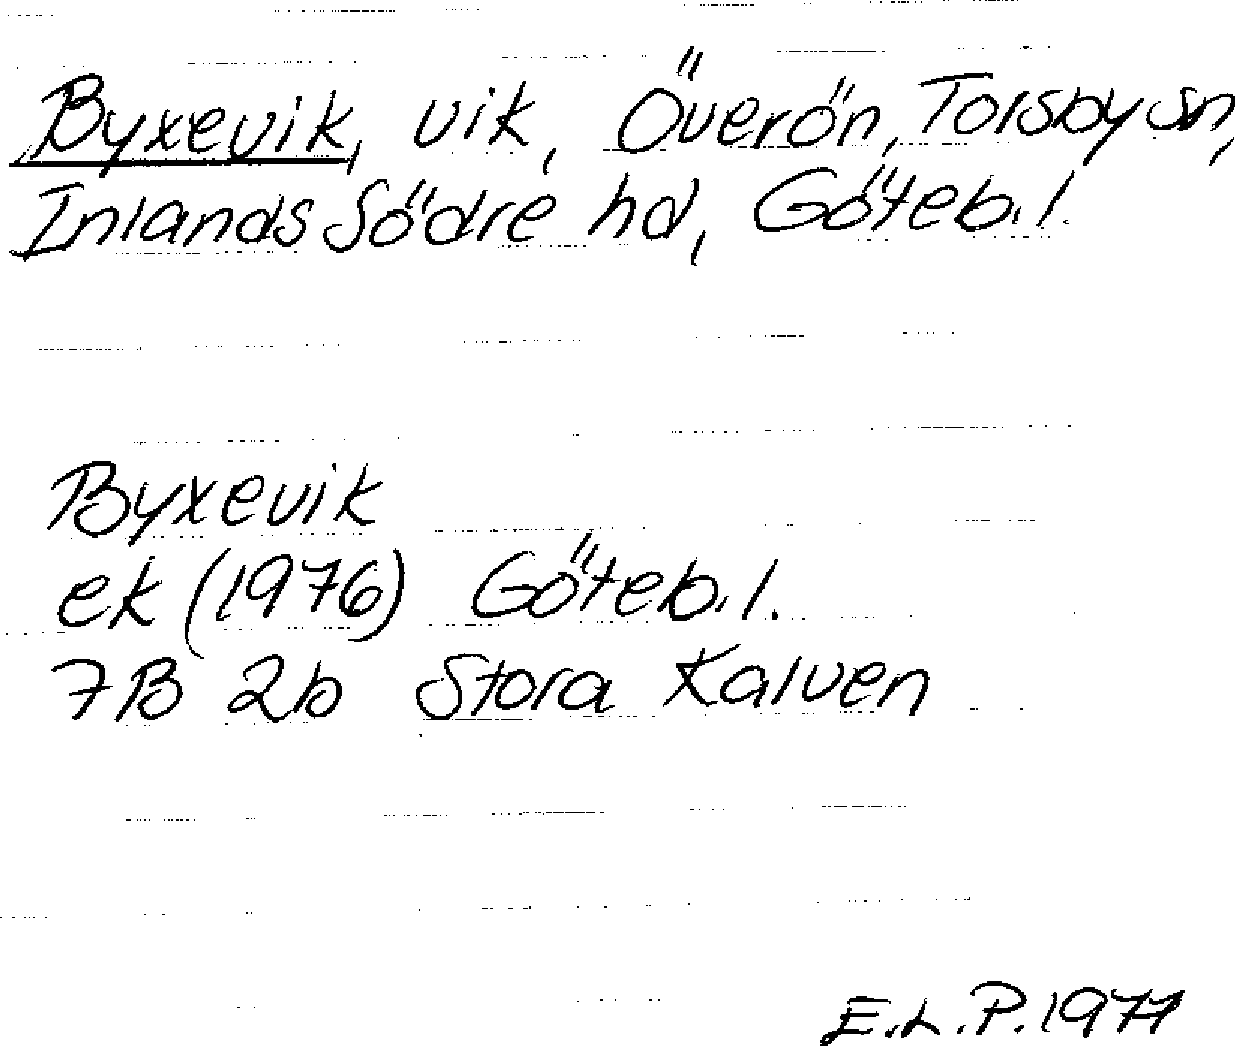 Byxevik, vik, Överön, Torsby sn,
Inlands Södre hd, Göteb. l.
Byxevik
ek (1976) Göteb. l.
7B 2b Stora Kalven
E.L.P. 1977